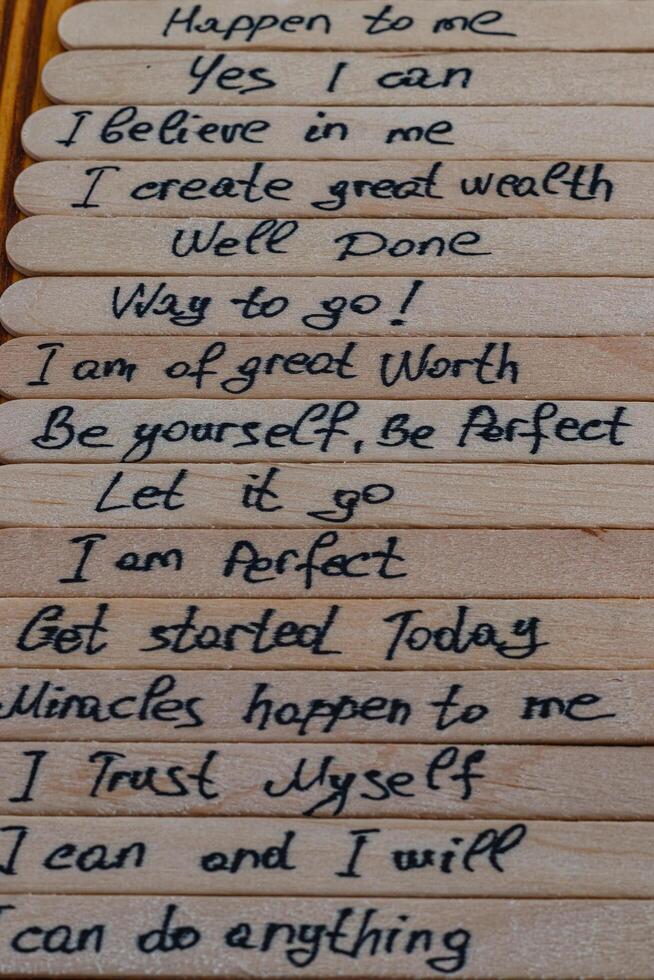 Happen to me
Yes I can
I believe in me
I create great wealth
Well Done
Way to go!
I am of great Worth
Be yourself, Be Perfect
Let it go
I am Perfect
Get started Today
Miracles happen to me
I Trust Myself
I can and I will
I can do anything